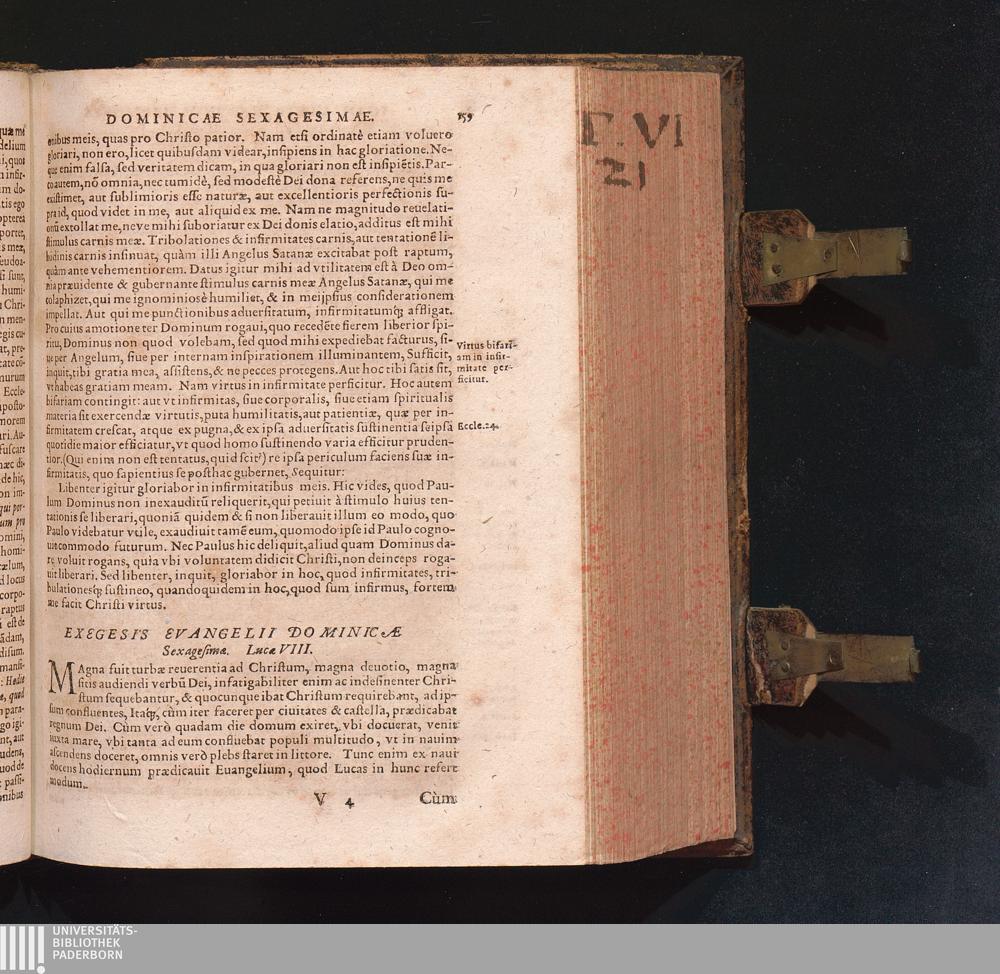 DOMINICAE SEXAGESIMAE. 159
onibus meis, quas pro Christo patior. Nam etsi ordinatè etiam voluero
gloriari, non ero, licet quibusdam videar, insipiens in hac gloriatione. Ne-
que enim falsa, sed veritatem dicam, in qua gloriari non est insipiẽtis. Par-
co autem, nõ omnia, nec tumidè, sed modestè Dei dona referens, ne quis me
existimet, aut sublimioris esse naturæ, aut excellentioris perfectionis su-
pra id, quod videt in me, aut aliquid ex me. Nam ne magnitudo reuelati-
onũ extollat me, neve mihi suboriatur ex Dei donis elatio, additus est mihi
stimulus carnis meæ. Tribolationes & infirmitates carnis, aut tentationẽ li-
bidinis carnis insinuat, quàm illi Angelus Satanæ excitabat post raptum,
quàm ante vehementiorem. Datus igitur mihi ad vtilitatem est à Deo om-
nia præuidente & gubernante stimulus carnis meæ Angelus Satanæ, qui me
colaphizet, qui me ignominiosè humiliet, & in meijpsius considerationem
impellat. Aut qui me punctionibus aduersitatum, infirmitatumq́; affligat.
Pro cuius amotione ter Dominum rogaui, quo recedẽte fierem liberior spi-
ritu, Dominus non quod volebam, sed quod mihi expediebat facturus, si-
ue per Angelum, siue per internam inspirationem illuminantem, Sufficit,
inquit, tibi gratia mea, assistens, & ne pecces protegens. Aut hoc tibi satis sit,
vt habeas gratiam meam. Nam virtus in infirmitate perficitur. Hoc autem
bifariam contingit: aut vt infirmitas, siue corporalis, siue etiam spiritualis
materia sit exercendæ virtutis, puta humilitatis, aut patientiæ, quæ per in-
firmitatem crescat, atque ex pugna, & ex ipsa aduersitatis sustinentia seipsa
quotidie maior efficiatur, vt quod homo sustinendo varia efficitur pruden-
tior. (Qui enim non est tentatus, quid scit?) re ipsa periculum faciens suæ in-
firmitatis, quo sapientius se posthac gubernet, Sequitur:
Libenter igitur gloriabor in infirmitatibus meis. Hic vides, quod Pau-
lum Dominus non inexauditũ reliquerit, qui petiuit à stimulo huius ten-
tationis se liberari, quoniã quidem & si non liberauit illum eo modo, quo
Paulo videbatur vtile, exaudiuit tamẽ eum, quomodo ipse id Paulo cogno-
uit commodo futurum. Nec Paulus hic deliquit, aliud quam Dominus da-
re voluit rogans, quia vbi voluntatem didicit Christi, non deinceps roga-
uit liberari. Sed libenter, inquit, gloriabor in hoc, quod infirmitates, tri-
bulationesq́; sustineo, quandoquidem in hoc, quod sum infirmus, fortem
me facit Christi virtus.
Virtus bifari-
am in infir-
mitate per-
ficitur.
Eccle.24.
EXEGESIS EVANGELII DOMINICÆ
Sexagesimæ. Lucæ VIII.
MAgna fuit turbæ reuerentia ad Christum, magna deuotio, magna
sitis audiendi verbũ Dei, infatigabiliter enim ac indesinenter Chri-
stum sequebantur, & quocunque ibat Christum requirebant, ad ip-
sum confluentes, Itaq́;, cùm iter faceret per ciuitates & castella, prædicabat
regnum Dei. Cùm verò quadam die domum exiret, vbi docuerat, venit
iuxta mare, vbi tanta ad eum confluebat populi multitudo, vt in nauim
ascendens doceret, omnis verò plebs staret in littore. Tunc enim ex naui
docens hodiernum prædicauit Euangelium, quod Lucas in hunc refert
modum.
V 4 Cùm
T. VI
21
UNIVERSITÄTS-
BIBLIOTHEK
PADERBORN